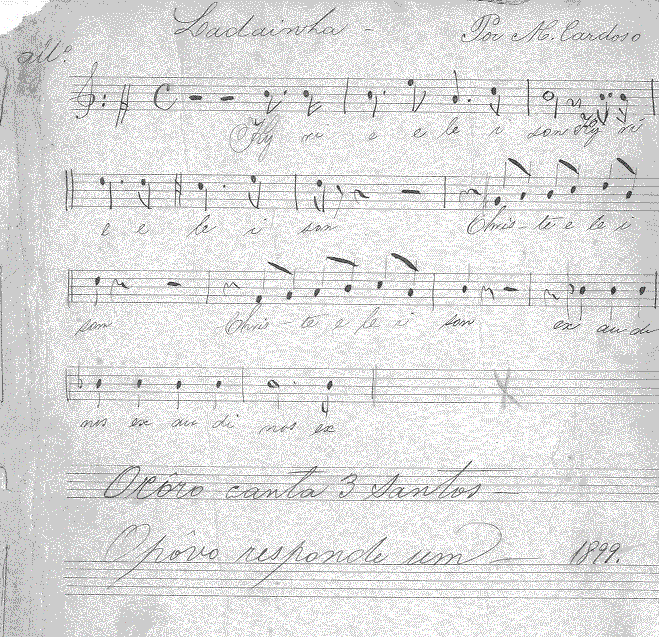 Ladainha - Por M. Cardoso
All.º
Ky ri e e le i son Ky ri
e e le i son Chris - te e le i
son Chris - te e le i son ex au di
nos ex au di nos ex
O côro canta 3 Santos —
O pôvo responde um — 1899.